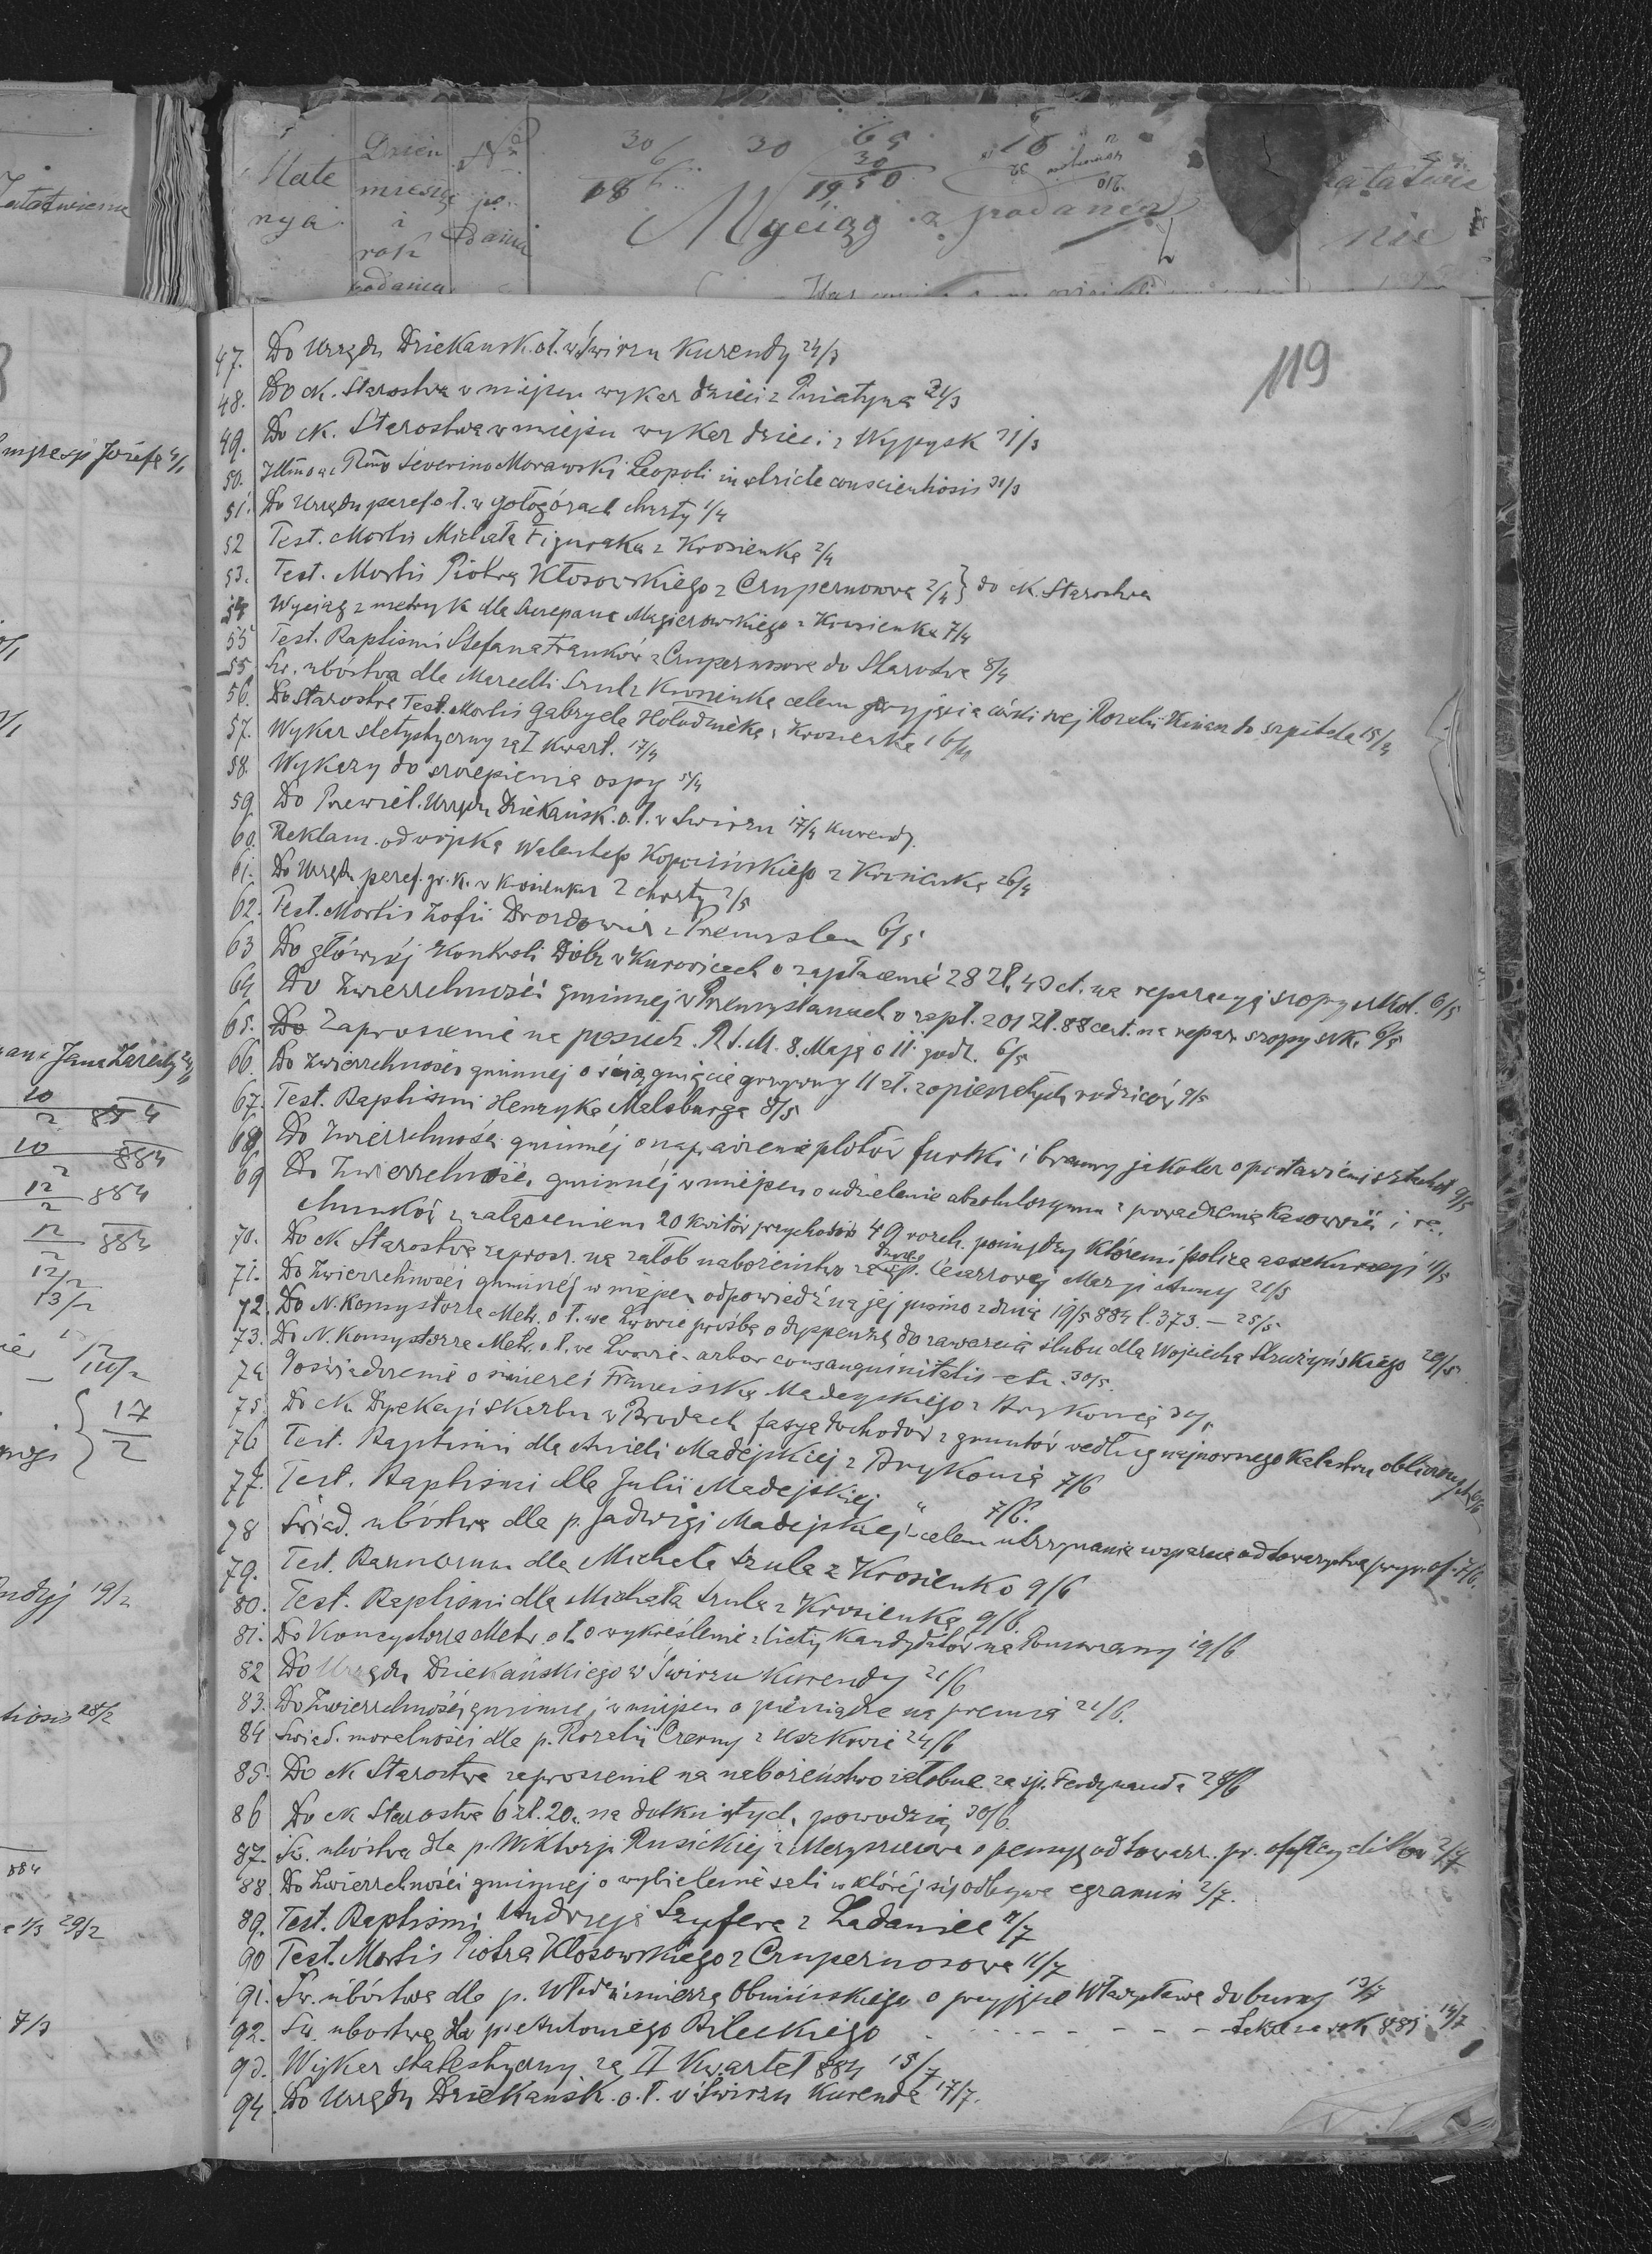 Zalatwienie
Nate
nya
Dzien
miesię
i
rok
podania
No
po
dania
30
6
18
30
69
30
1950
16
Wyciąg z podania
210
załatwie
nie
119
47. Do Urzędu Dziekansk. o.ł. w Świrzu Kurendy 24/3
48. Do ck. Starostwa w miejscu wykaz dzieci z Pniatyna 31/3
49. Do ck. Starostwa w miejscu wykaz dzieci z Wypysk 31/3
50. Illmo ac Rmo Severino Morawski Leopoli in stricte conscientiosis 31/3
51. Do Urzędu paraf. o.ł. w Gołogórach chrzty 1/4
52 Test. Mortis Michała Figuraka z Krosienka 2/4
53. Test. Mortis Piotra Kłosowskiego z Czupernosowa 2/4 } do ck. Starostwa
54 Wyciąg z metryk dla Szczepana Magierowskiego z Krosienka 7/4
55 Test. Baptismi Stefana Franków z Czupernosowa do Starostwa 8/4
55. Św. ubóstwa dla Marcelli Szul z Krosienka celem przyjęcia córki swej Rozalii do szpitala 15/4
56. Do Starostwa Test. Mortis Gabryela Hołudniaka z Krosienka 16/4
57. Wykaz statystyczny za I kwart. 17/4
58. Wykazy do szczepienia ospy 5/4
59. Do Przewiel. Urzędu Dziekańsk. o.ł. w Świrzu 17/4 Kurendy.
60. Reklam. od wojska Walentego Kopocińskiego z Krosienka 26/4
61. Do Urzędu paraf. gr. k. w Krosienku 2 chrzty 2/5
62. Test. Mortis Zofii Drozdowicz z Przemyślan 6/5
63 Do głównéj Kontroli Dóbr w Kurowicach o zapłacenie 28 Zł. 43 ct. na reparacyją szopy szkol. 6/5
64 Do Zwierzchności gminnej w Przemyślanach o zapł. 201 Zł. 88 cent. na repar. szopy szk. 6/5
65. Do Zaproszenie na posiedz. R.S.M. 8. Maja o 11. godz. 6/5
66. Do Zwierzchności gminnej o ściągnięcie grzywny 11 zł. z opieszałych rodziców 9/5
67. Test. Baptismi Henryka Malsburga 8/5
68 Do Zwierzchności gminnéj o naprawienie płotów furtki i bramy jakoteż o postawienie sztachet 9/5
69 Do Zwierzchności gminnéj w miejscu o udzielenie absolutoryum z prowadzenia kasowości i ra-
chunków z załączeniem 20 kwitów przychodów 49 rozch. pomiędzy któremi polica assekuracyi 11/5
70. Do ck Starostwa zaprosz. na żałob nabożeństwo za śp. Cesarzowej Maryi Anny 21/5
71. Do Zwierzchności gminnej w miejscu odpowiedź na jej pismo z dnia 19/5 884 l. 373. — 25/5
72. Do N. Konsystorza Metr. o.ł. we Lwowie prośba o dyspensę do zawarcia ślubu dla Wojciecha Strużyńskiego 29/5
73. Do N. Konsystorza Metr. o.ł. we Lwowie - arbor consanguinitatis etc. 30/5.
74 Poświadczenie o śmierci Franciszka Madeyskiego z Brykonia 30/5
75. Do ck. Dyrekcyi Skarbu w Brodach fasyą dochodów z gruntów według najnowszego Katastru obliczonych 6/6
76 Test. Baptismi dla Anieli Madejskiej z Brykonia 7/6
77. Test. Baptismi dla Julii Madejskiej " 7/6.
78 Świad. ubóstwa dla p. Jadwigi Madejskiej - celem utrzymania wsparcia od towarzystwa pryw. of. 7/6.
79. Test. Bannorum dla Michała Szula z Krosienko 9/6
80. Test. Baptismi dla Michała Szula z Krosienka 9/6.
81. Do Konsystorza Metr. o.ł. o wykreślenie z listy Kandydatów na Pomorzany 19/6
82 Do Urzędu Dziekańskiego w Świrzu Kurendy 21/6
83. Do Zwierzchności gminnej w miejscu o pieniądze na premia 21/6.
84 Świad. moralności dla p. Rozalii Czerny z Uszkowic 24/6
85. Do ck Starostwa zaproszenie na nabożeństwo żałobne za śp. Ferdynanda 28/6
86 Do ck Starostwa 6 zł. 20. na dotkniętych powodzią 30/6.
87. Św. ubóstwa dla p. Wiktoryi Rusickiej z Meryszczowa o pensyę od towarz. pr. oficyalistów 2/7
88. Do Zwierzchności gminnej o wybielenie sali w któréj się odbywa egzamin 2/7.
89. Test. Baptismi Andrzeja Szyfera z Ladaniec 11/7
90 Test. Mortis Piotra Kłosowskiego z Czupernosowa 11/7
91. Św. ubóstwa dla p. Włodzimierza Obmińskiego o przyjęcie Władysława do bursy 13/7
92. Św. ubostwa dla p. Antoniego Bileckiego - - - - - - - - - rok 885 14/7
93. Wykaz statystyczny za II Kwartał 884 15/7
94. Do Urzędu Dziekańsk. o.ł. w Świrzu Kurenda 17/7.
Józefa 4/1
Jana Zaręby
10
2 884
10 884
12/2 884
12/2 884
12/2
13/2
17
2
19/2
28/2
884
29/2
7/3